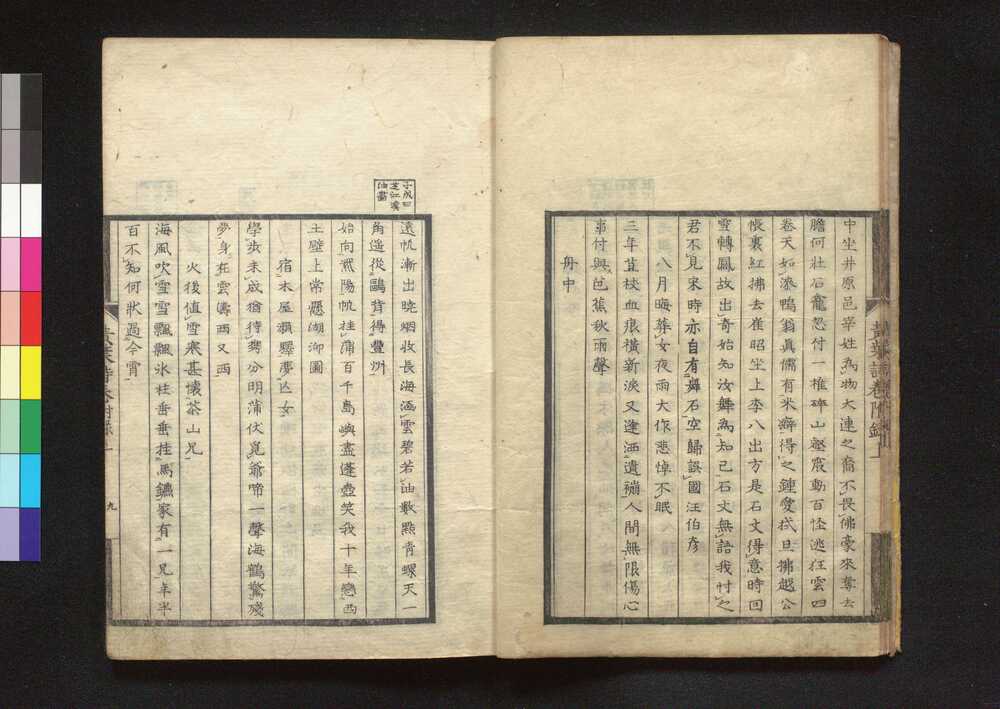 中坐井原邑宰姓為物大連之裔不畏佛豪來奪去
膽何壯石龍忽付一椎碎山壑震動百怪逃狂雲四
卷天如漆鴨翁真儒有米癖得之鍾愛拭且拂越公
帳裏紅拂去崔昭坐上李八出方是石丈得意時回
雪轉鳳故出奇始知汝舞為知己石丈無語我忖之
君不見宋時亦自有舞石空歸誤國汪伯彥
八月晦葬女夜雨大作悲悼不眠
三年茸校血痕橫新淚又逢洒遺褓人間無限傷心
事付與芭蕉秋雨聲
舟中
黃葉詩卷附錄上
子成曰
芝江漢
油畫
遠帆漸出曉烟收長海涵雲碧若油數點青螺天一
角遙從鷗背得豐州
始向
陽帆挂蒲百千島嶼盡蓬壺笑我十年戀西
土壁上常懸湖泖圖
宿木屋瀨驛夢亡女
學步未成猶待
分明蒲伏覓爺啼一聲海鶴驚殘
夢身在雲濤西又西
火後值雪寒甚懷茶山兄
海風吹雪雪飄飄氷柱垂垂挂馬鑣家有一兄年半
百不知何狀過今宵
黃葉詩卷附錄上
九